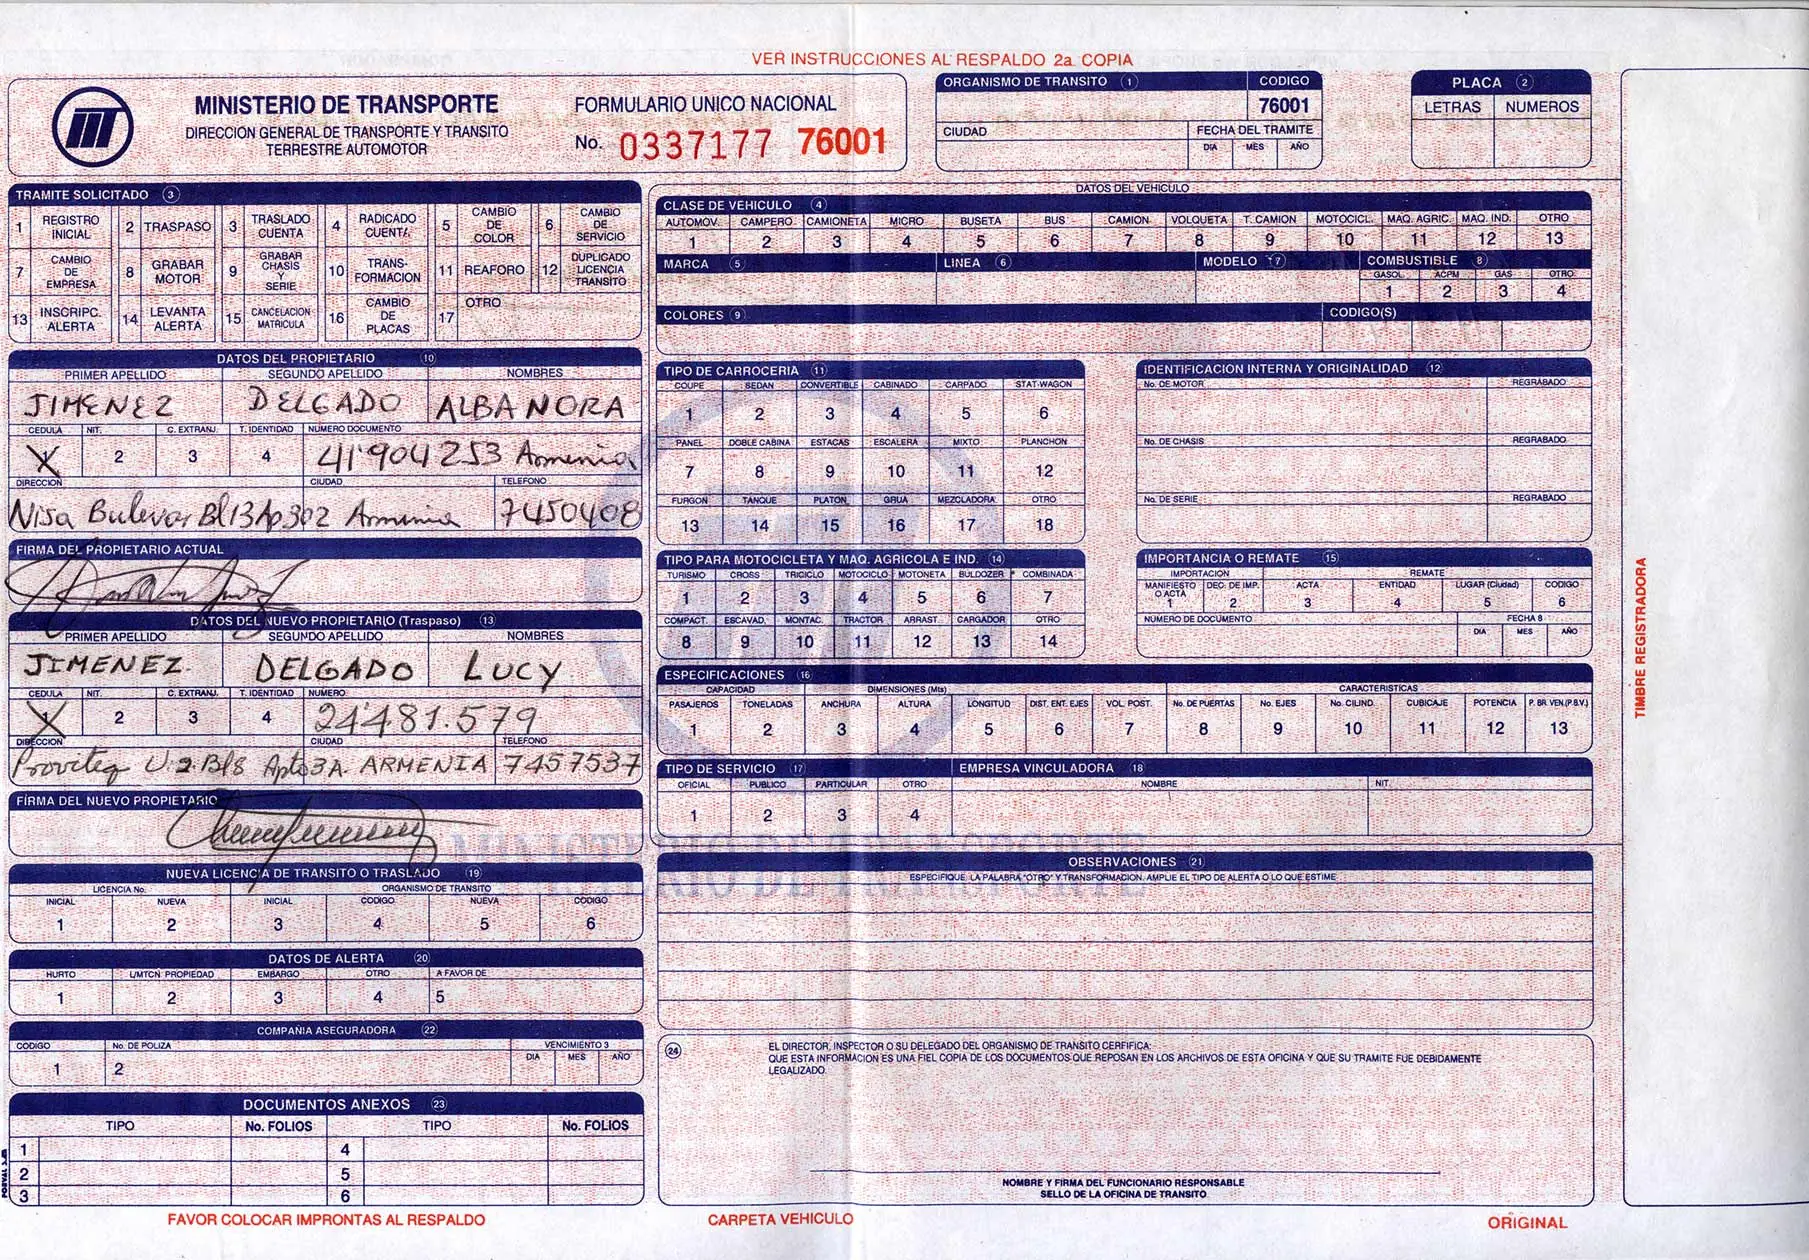 VER INSTRUCCIONES AL RESPALDO 2a. COPIA
MINISTERIO DE TRANSPORTE
DIRECCION GENERAL DE TRANSPORTE Y TRANSITO
TERRESTRE AUTOMOTOR
FORMULARIO UNICO NACIONAL
No. 0337177 76001
ORGANISMO DE TRANSITO 1 CODIGO
76001
CIUDAD FECHA DEL TRAMITE
DIA MES AÑO
PLACA 2
LETRAS NUMEROS
TRAMITE SOLICITADO 3
1 REGISTRO INICIAL 2 TRASPASO 3 TRASLADO CUENTA 4 RADICADO CUENTA 5 CAMBIO DE COLOR 6 CAMBIO DE SERVICIO
7 CAMBIO DE EMPRESA 8 GRABAR MOTOR 9 GRABAR CHASIS Y SERIE 10 TRANS-FORMACION 11 REAFORO 12 DUPLICADO LICENCIA TRANSITO
13 INSCRIPC. ALERTA 14 LEVANTA ALERTA 15 CANCELACION MATRICULA 16 CAMBIO DE PLACAS 17 OTRO
DATOS DEL PROPIETARIO 10
PRIMER APELLIDO SEGUNDO APELLIDO NOMBRES
JIMENEZ DELGADO ALBA NORA
CEDULA NIT. C. EXTRANJ. T. IDENTIDAD NUMERO DOCUMENTO
X 2 3 4 41'904253 Armenia
DIRECCION CIUDAD TELEFONO
Nisa Bulevar Bl 13 Ap. 302 Armenia 7450408
FIRMA DEL PROPIETARIO ACTUAL
DATOS DEL NUEVO PROPIETARIO (Traspaso) 13
PRIMER APELLIDO SEGUNDO APELLIDO NOMBRES
JIMENEZ. DELGADO LUCY
CEDULA NIT. C. EXTRANJ. T. IDENTIDAD NUMERO
X 2 3 4 24'481.579
DIRECCION CIUDAD TELEFONO
Proviteq U.2 Bl 8 Apto 3A. ARMENIA 7457537
FIRMA DEL NUEVO PROPIETARIO
NUEVA LICENCIA DE TRANSITO O TRASLADO 19
LICENCIA No. ORGANISMO DE TRANSITO
INICIAL NUEVA INICIAL CODIGO NUEVA CODIGO
1 2 3 4 5 6
DATOS DE ALERTA 20
HURTO L/MTCN. PROPIEDAD EMBARGO OTRO A FAVOR DE
1 2 3 4 5
COMPAÑIA ASEGURADORA 22
CODIGO No. DE POLIZA VENCIMIENTO 3
DIA MES AÑO
1 2
DOCUMENTOS ANEXOS 23
TIPO No. FOLIOS TIPO No. FOLIOS
1 4
2 5
3 6
FAVOR COLOCAR IMPRONTAS AL RESPALDO
DATOS DEL VEHICULO
CLASE DE VEHICULO 4
AUTOMOV. CAMPERO CAMIONETA MICRO BUSETA BUS CAMION VOLQUETA T. CAMION MOTOCICL. MAQ. AGRIC. MAQ. IND. OTRO
1 2 3 4 5 6 7 8 9 10 11 12 13
MARCA 5 LINEA 6 MODELO 7 COMBUSTIBLE 8
GASOL. ACPM GAS OTRO
1 2 3 4
COLORES 9 CODIGO(S)
TIPO DE CARROCERIA 11
COUPE SEDAN CONVERTIBLE CABINADO CARPADO STAT-WAGON
1 2 3 4 5 6
PANEL DOBLE CABINA ESTACAS ESCALERA MIXTO PLANCHON
7 8 9 10 11 12
FURGON TANQUE PLATON GRUA MEZCLADORA OTRO
13 14 15 16 17 18
IDENTIFICACION INTERNA Y ORIGINALIDAD 12
No. DE MOTOR REGRABADO
No. DE CHASIS REGRABADO
No. DE SERIE REGRABADO
TIPO PARA MOTOCICLETA Y MAQ. AGRICOLA E IND. 14
TURISMO CROSS TRICICLO MOTOCICLO MOTONETA BULDOZER COMBINADA
1 2 3 4 5 6 7
COMPACT. ESCAVAD. MONTAC. TRACTOR ARRAST. CARGADOR OTRO
8 9 10 11 12 13 14
IMPORTANCIA O REMATE 15
IMPORTACION REMATE
MANIFIESTO O ACTA DEC. DE IMP. ACTA ENTIDAD LUGAR (Ciudad) CODIGO
1 2 3 4 5 6
NUMERO DE DOCUMENTO FECHA 8
DIA MES AÑO
ESPECIFICACIONES 16
CAPACIDAD DIMENSIONES (Mts) CARACTERISTICAS
PASAJEROS TONELADAS ANCHURA ALTURA LONGITUD DIST. ENT. EJES VOL. POST. No. DE PUERTAS No. EJES No. CILIND. CUBICAJE POTENCIA P. BR. VEN.(P.B.V.)
1 2 3 4 5 6 7 8 9 10 11 12 13
TIPO DE SERVICIO 17 EMPRESA VINCULADORA 18
OFICIAL PUBLICO PARTICULAR OTRO NOMBRE NIT.
1 2 3 4
OBSERVACIONES 21
ESPECIFIQUE LA PALABRA "OTRO" Y TRANSFORMACION. AMPLIE EL TIPO DE ALERTA O LO QUE ESTIME
24 EL DIRECTOR, INSPECTOR O SU DELEGADO DEL ORGANISMO DE TRANSITO CERFIFICA:
QUE ESTA INFORMACION ES UNA FIEL COPIA DE LOS DOCUMENTOS QUE REPOSAN EN LOS ARCHIVOS DE ESTA OFICINA Y QUE SU TRAMITE FUE DEBIDAMENTE
LEGALIZADO.
NOMBRE Y FIRMA DEL FUNCIONARIO RESPONSABLE
SELLO DE LA OFICINA DE TRANSITO
CARPETA VEHICULO
ORIGINAL
TIMBRE REGISTRADORA